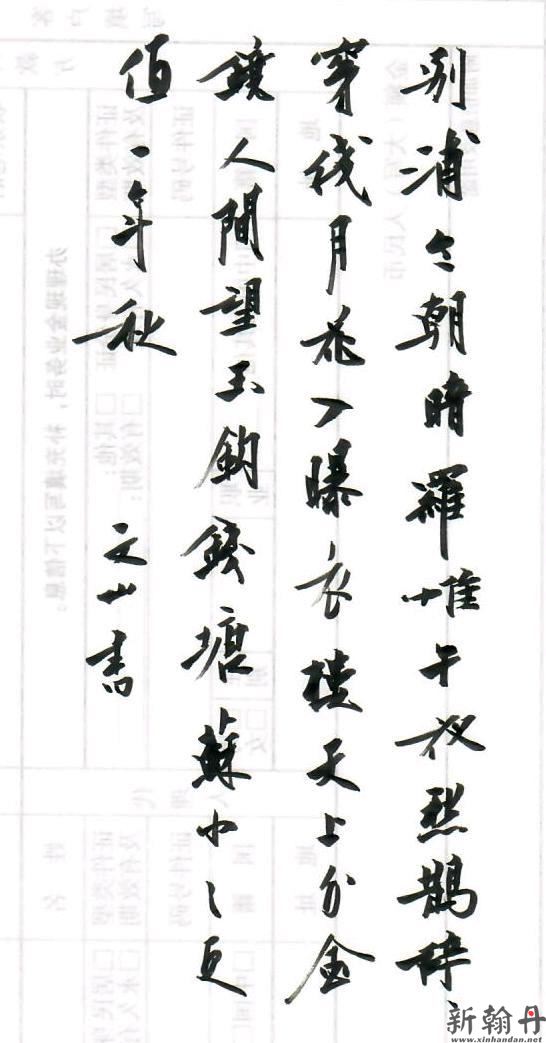 别浦今朝暗羅帷午夜愁鵲辞
穿线月花入曝衣楼天上分金
鏡人間望玉鈎錢塘蘇小々更
值一年秋 文山書
新翰丹
www.xinhandan.net